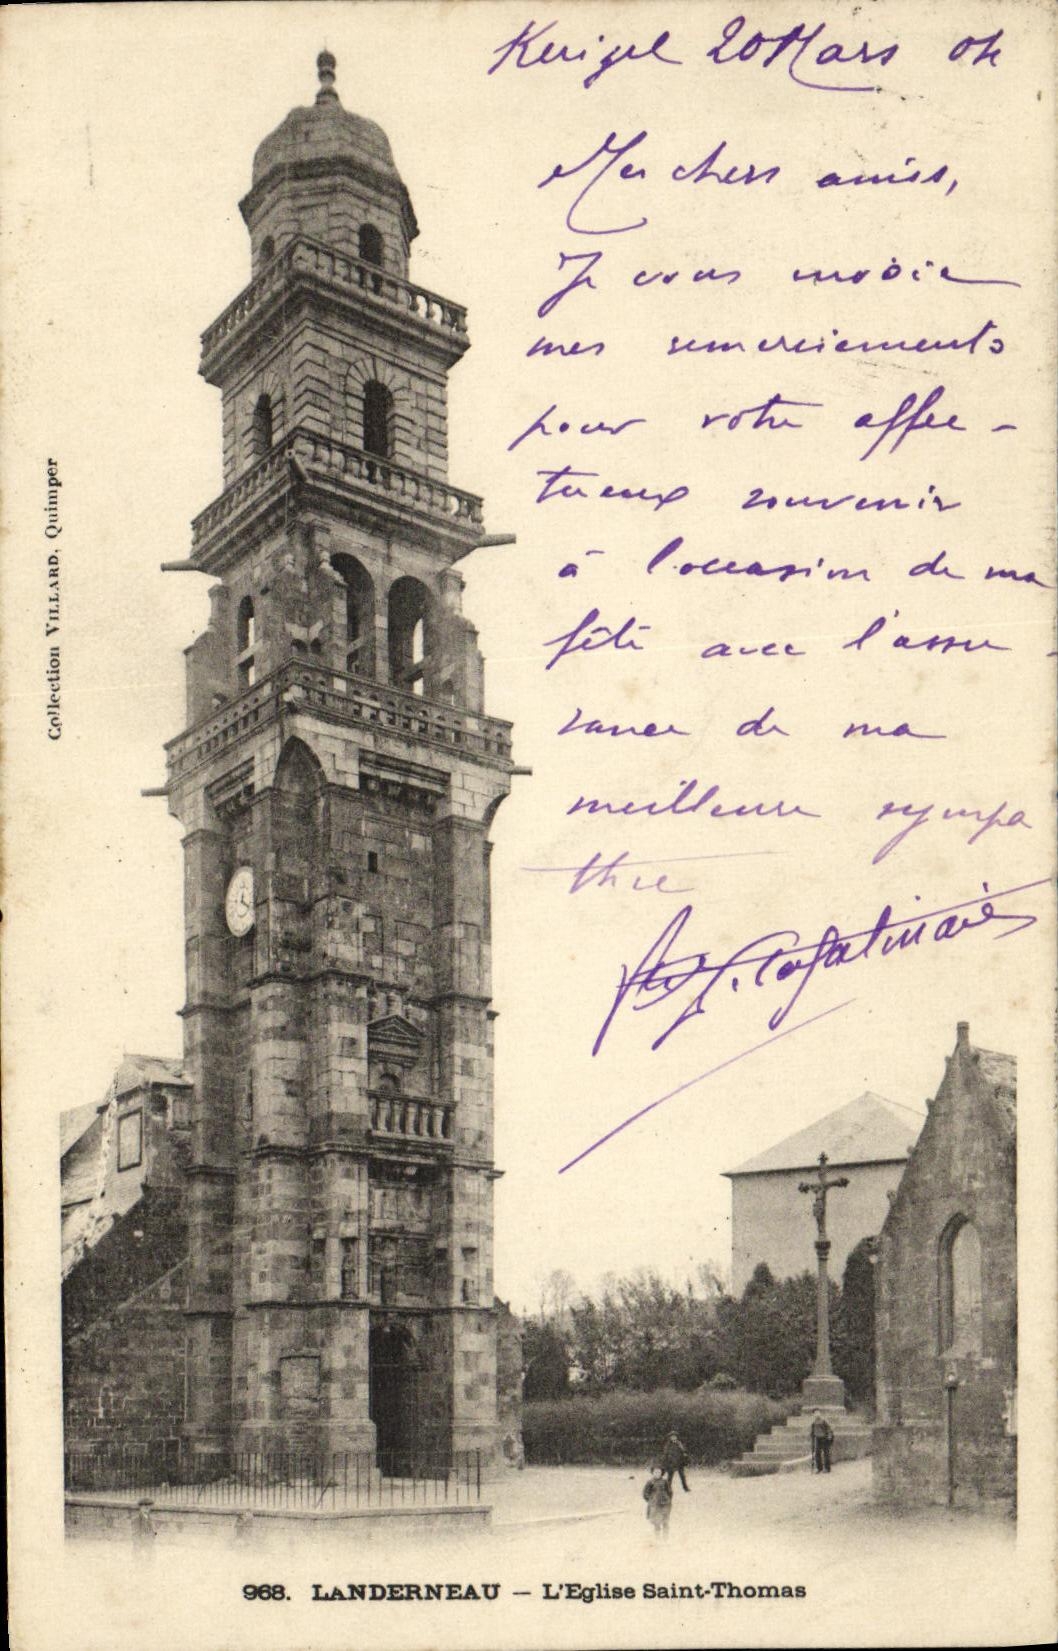 20 Mars 04
Mes chers amis,
Je vous envoie
mes remerciements
pour votre affec-
tueux souvenir
à l'occasion de ma
fête avec l'assu-
rance de ma
meilleure sympa
thie
Collection VILLARD, Quimper
968. LANDERNEAU — L'Eglise Saint-Thomas